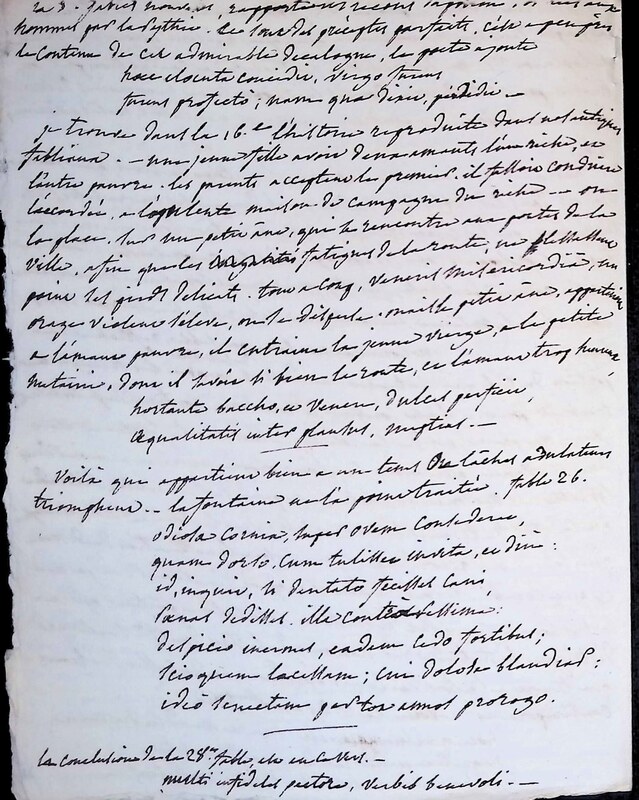 hommes par la Pythie. Le tour des préceptes parfaits, c'est a peu près
le contenu de cet admirable decalogue, le poete ajoute
haec elocuta concidit, virgo furens
furens profecto; nam quae dixit, perdidit —
je trouve dans la 16.e l'histoire reproduite dans nos antiques
fabliaux. — une jeune fille avoit deux amants l'un riche, et
l'autre pauvre. les parents acceptent le premier. il falloit conduire
l'accordée, a l'opulente maison de campagne du riche — on
la place, sur un petit ane, qui se rencontre aux portes de la
ville, afin que les fatigues de la route, ne blessassent
point ses pieds delicats. tout a coup, veneris misericordiâ, un
orage violent s'élève, on se disperse, mais le petit ane, appartient
a l'amant pauvre, il entraine la jeune vierge, a la petite
metairie, dont il savoit si bien la route, et l'amant trop heureux
hortante baccho, et Venere, dulces perficit,
aequalitatis inter plausus, nuptias. —
Voilà qui appartient bien a un tems de lâches adulateurs
triomphent — la fontaine ne l'a point traitée. fable 26.
odiosa cornix, super ovem consederat,
quam dorso, cum tulisset invita, et diu:
id, inquit, si dentato fecisses cani,
Poenas dedisses. illa contra pessima:
despicio inermes, eadem cedo fortibus;
scio quem lacessam; cui dolosa blandiar:
ideò senectam per ton annos prorogo.
la conclusion de la 28.me fable, est en ce vers. —
multi infideles pectore, verbis benevoli. —